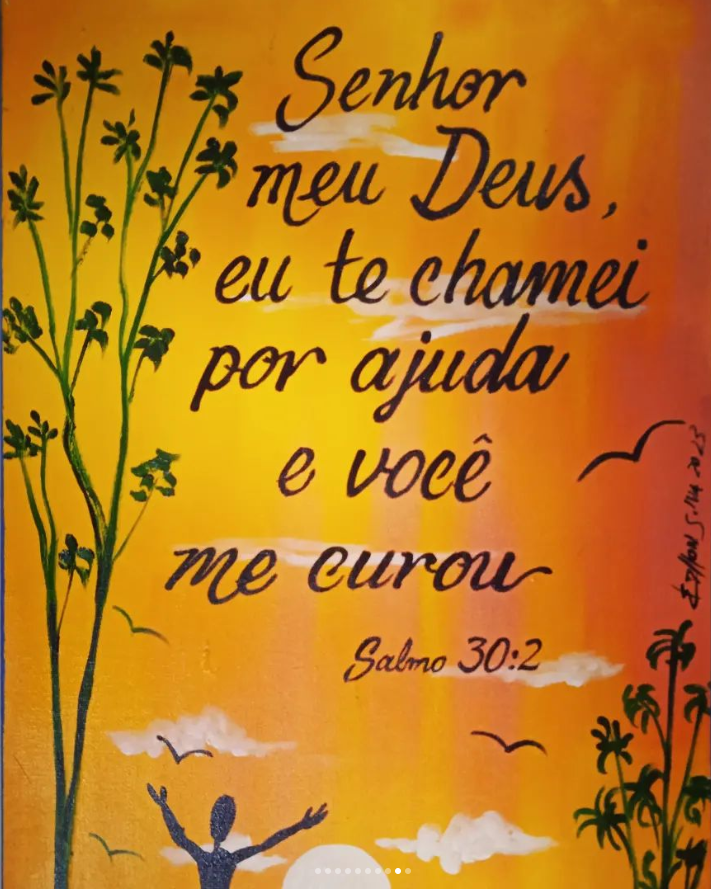 Senhor
meu Deus,
eu te chamei
por ajuda
e você
me curou
Salmo 30:2
2023